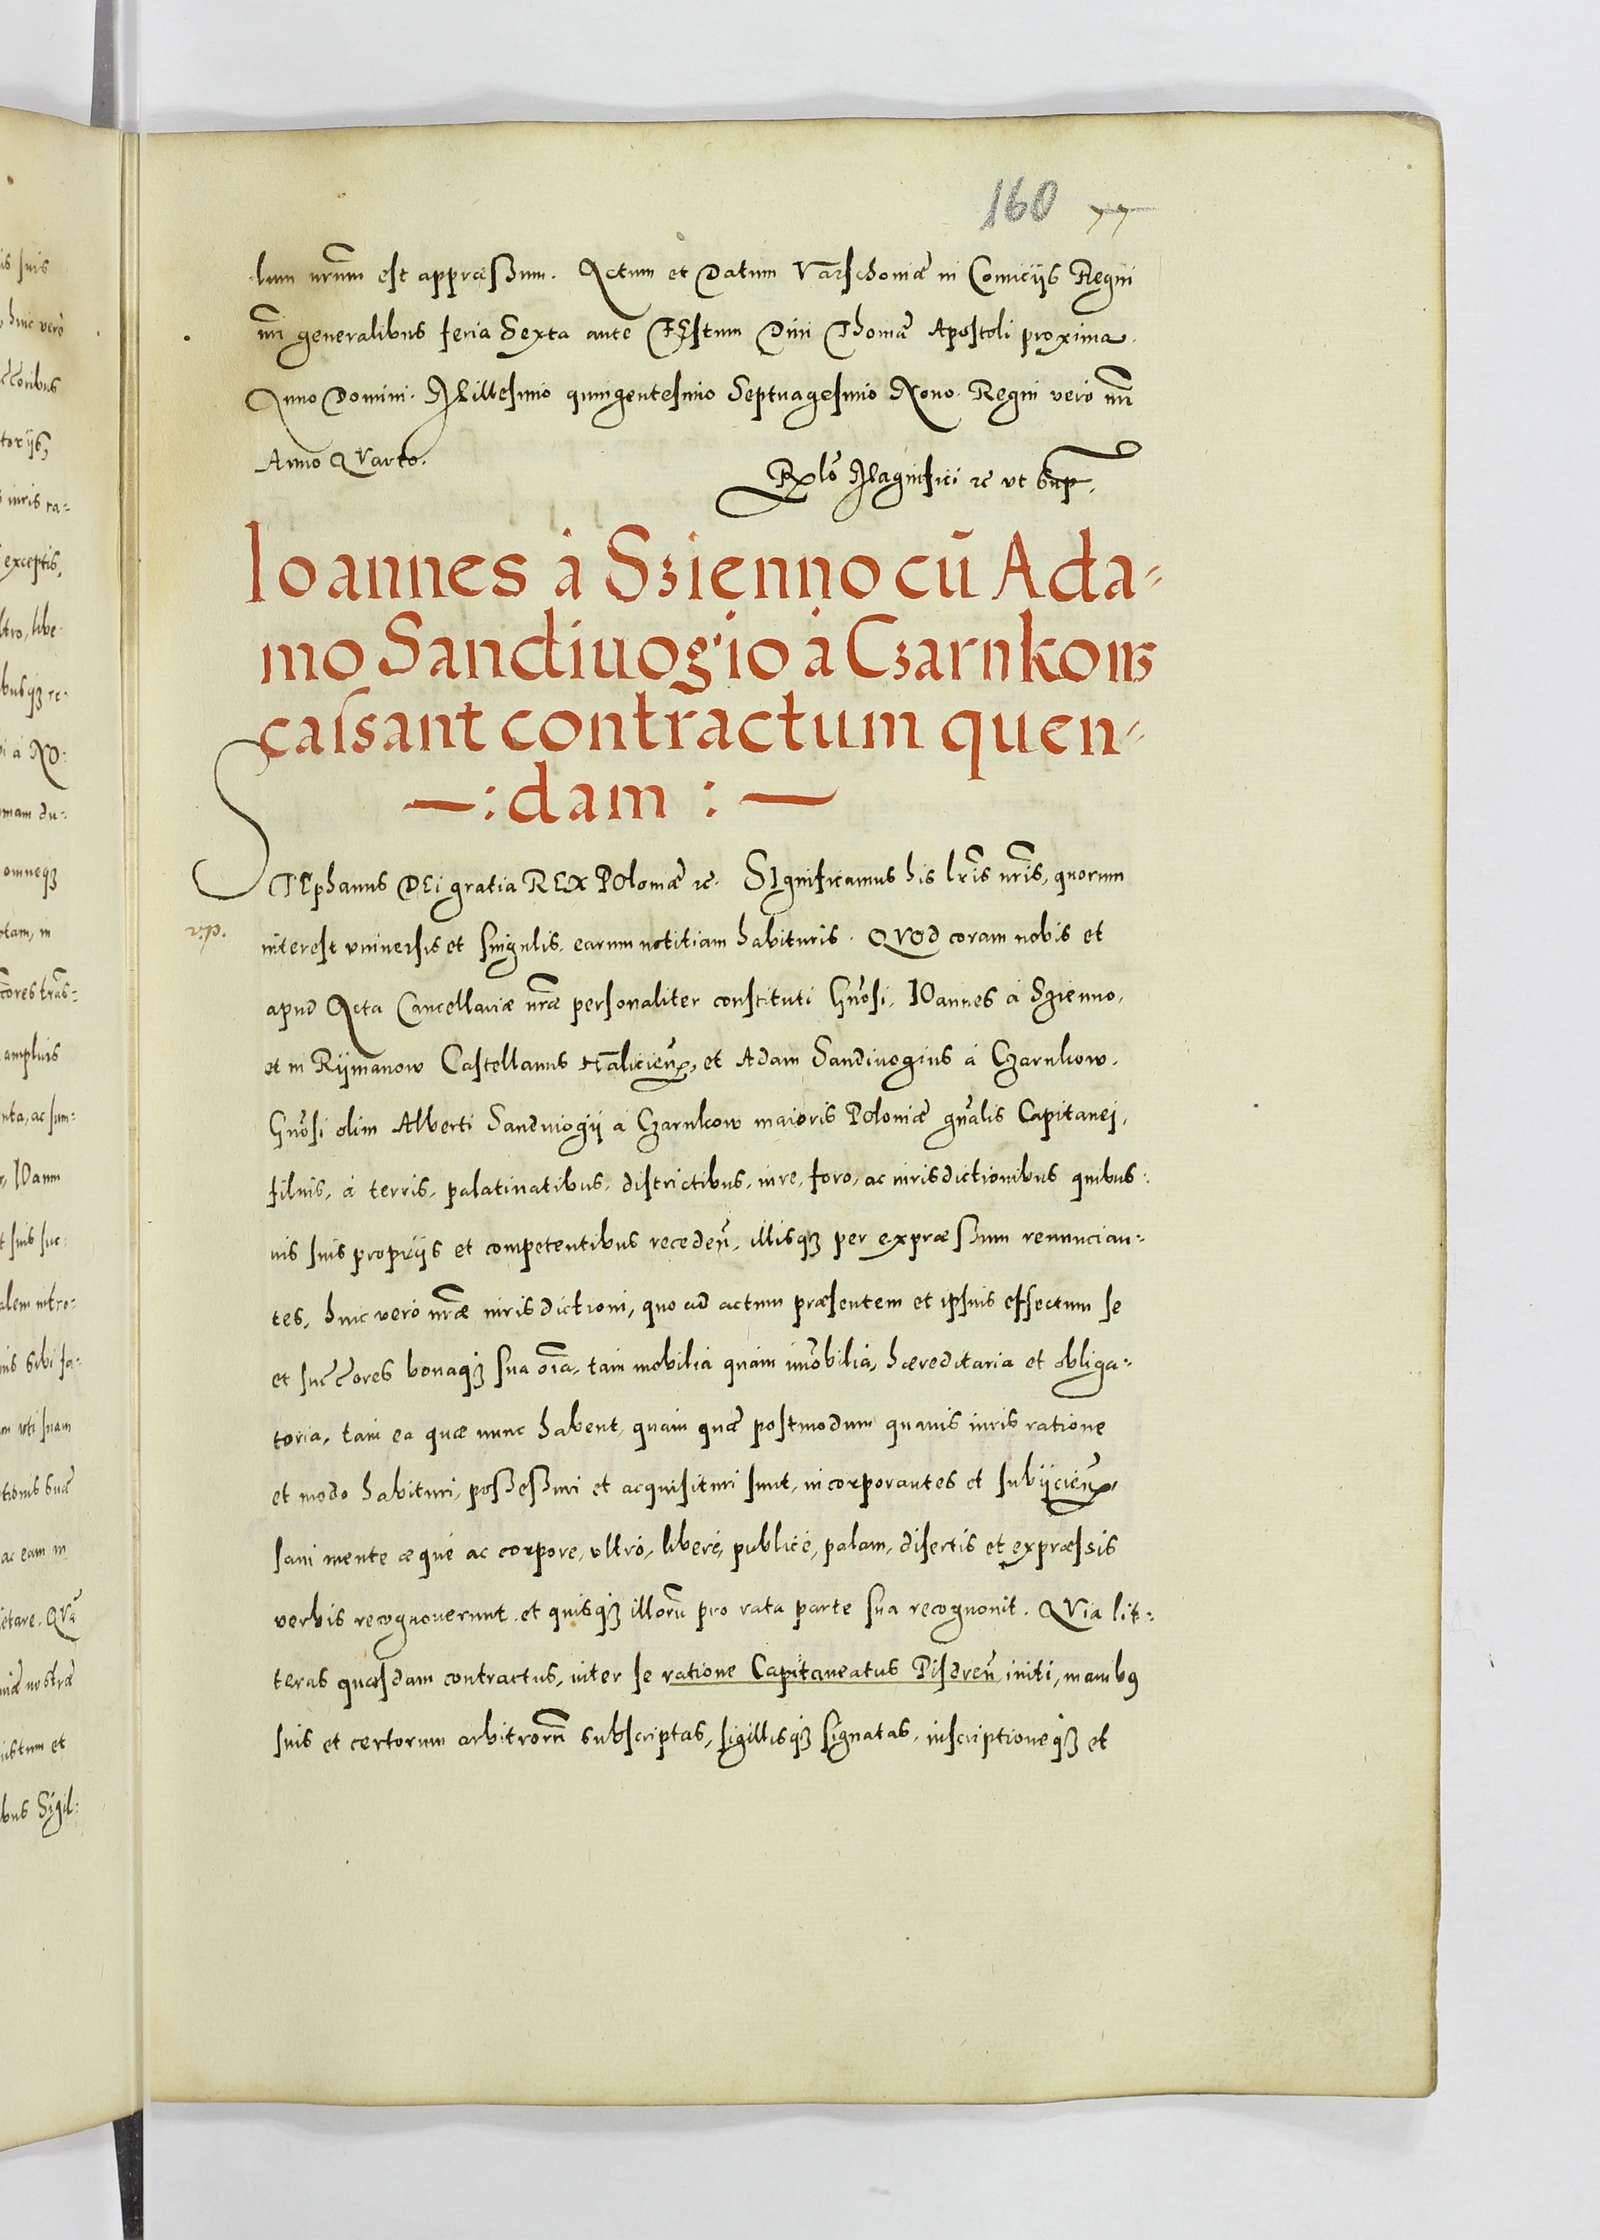 160 77
lum nrūm est appraessum. Actum et Datum Varschoniae in Comicijs Regni
nri generalibus feria Sexta ante FEstum Diui Thomae Apostoli proxima.
Anno Domini. Millesimo quingentesimo Septuagesimo Nono. Regni vero nri
Anno QVarto.
Rlo Magnifici rc vt supr.
Ioannes à Sziennocū Ada-
mo Sandiuogio à Czarnkow
cassant contractum quen-
—: dam : —
STEphanus DEi gratia REX POloniae rc. SIgnificamus his lris nris, quorum
v.p.
interest vniuersis et singulis. earum notitiam habituris. QVod coram nobis et
apud Acta Cancellariae nrae personaliter constituti Gnosi, IOannes à Szienno,
et in Rijmanow Castellanus Halicien, et Adam Sandiuogius à Czarnkow.
Gnosi olim Alberti Sandiuogij à Czarnkow maioris POloniae gnalis Capitanej,
filius, à terris, palatinatibus, districtibus, iure, foro, ac iurisdictionibus quibus:
uis suis proprijs et competentibus receden, illisq3 per expraessum renuncian:
tes, huic vero nrae iurisdictioni, quo ad actum praesentem et ipsius effectum se
et succores bonaq3 sua oia, tam mobilia quàm imobilia, haereditaria et obliga:
toria, tam ea quae nunc habent, quàm quae postmodum quauis iuris ratione
et modo habituri, possessuri et acquisituri sunt, incorporantes et subijcien,
sani mente aequè ac corpore, vltrò, liberè, publicè, palam, disertis et expraessis
verbis recognouerunt. et quisq3 illorū pro rata parte sua recognouit. QVia lit:
teras quasdam contractus, inter se ratione Capitaneatus Pisdren, initi, manib9
suis et certorum arbitrorū subscriptas, sigillisq3 signatas, inscriptioneq3 et